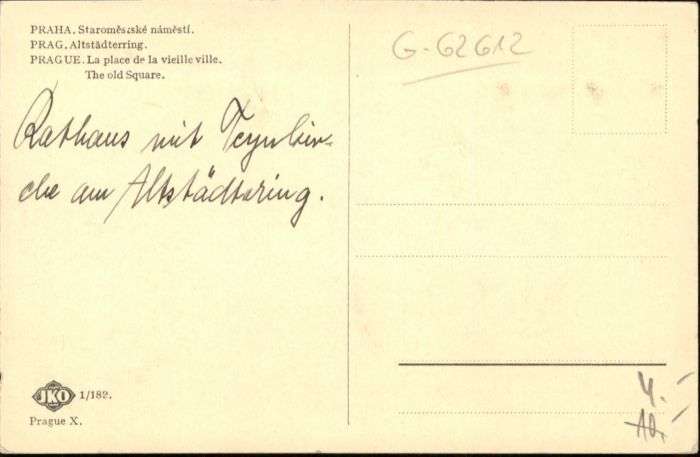 PRAHA. Staroměstské náměstí.
PRAG. Altstädterring.
PRAGUE. La place de la vieille ville.
The old Square.
G-62612
Rathaus mit Teynkir-
che am Altstädtering.
JKO 1/182.
Prague X.
4.-
10.-